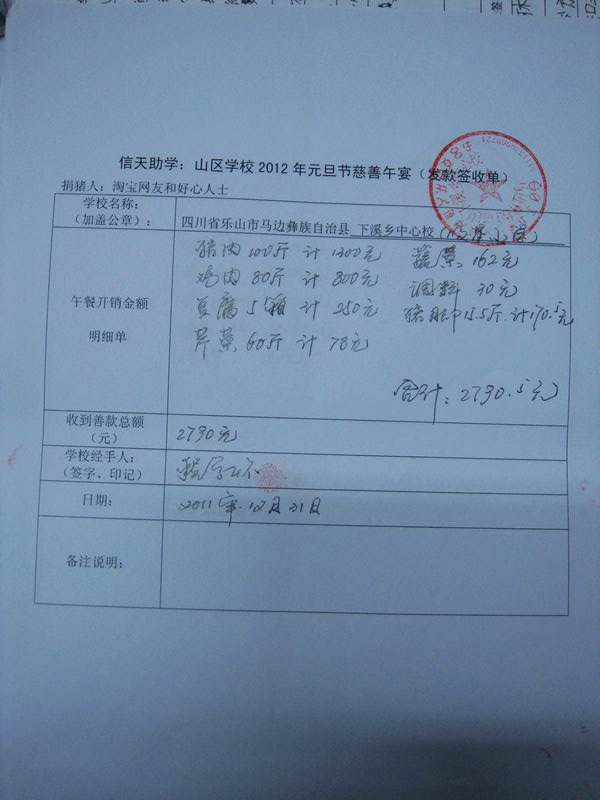 信天助学：山区学校2012年元旦节慈善午宴（发款签收单）
捐猪人：淘宝网友和好心人士
学校名称：
（加盖公章）：
四川省乐山市马边彝族自治县 下溪乡中心校
午餐开销金额
明细单
猪肉100斤 计1200元 蔬菜162元
鸡肉80斤 计800元 调料30元
豆腐5箱 计250元 猪脚15.5斤 计170.5元
芹菜60斤 计78元
合计：2790.5元
收到善款总额
（元）
2790元
学校经手人：
（签字、印记）
日期：
2011年12月31日
备注说明：